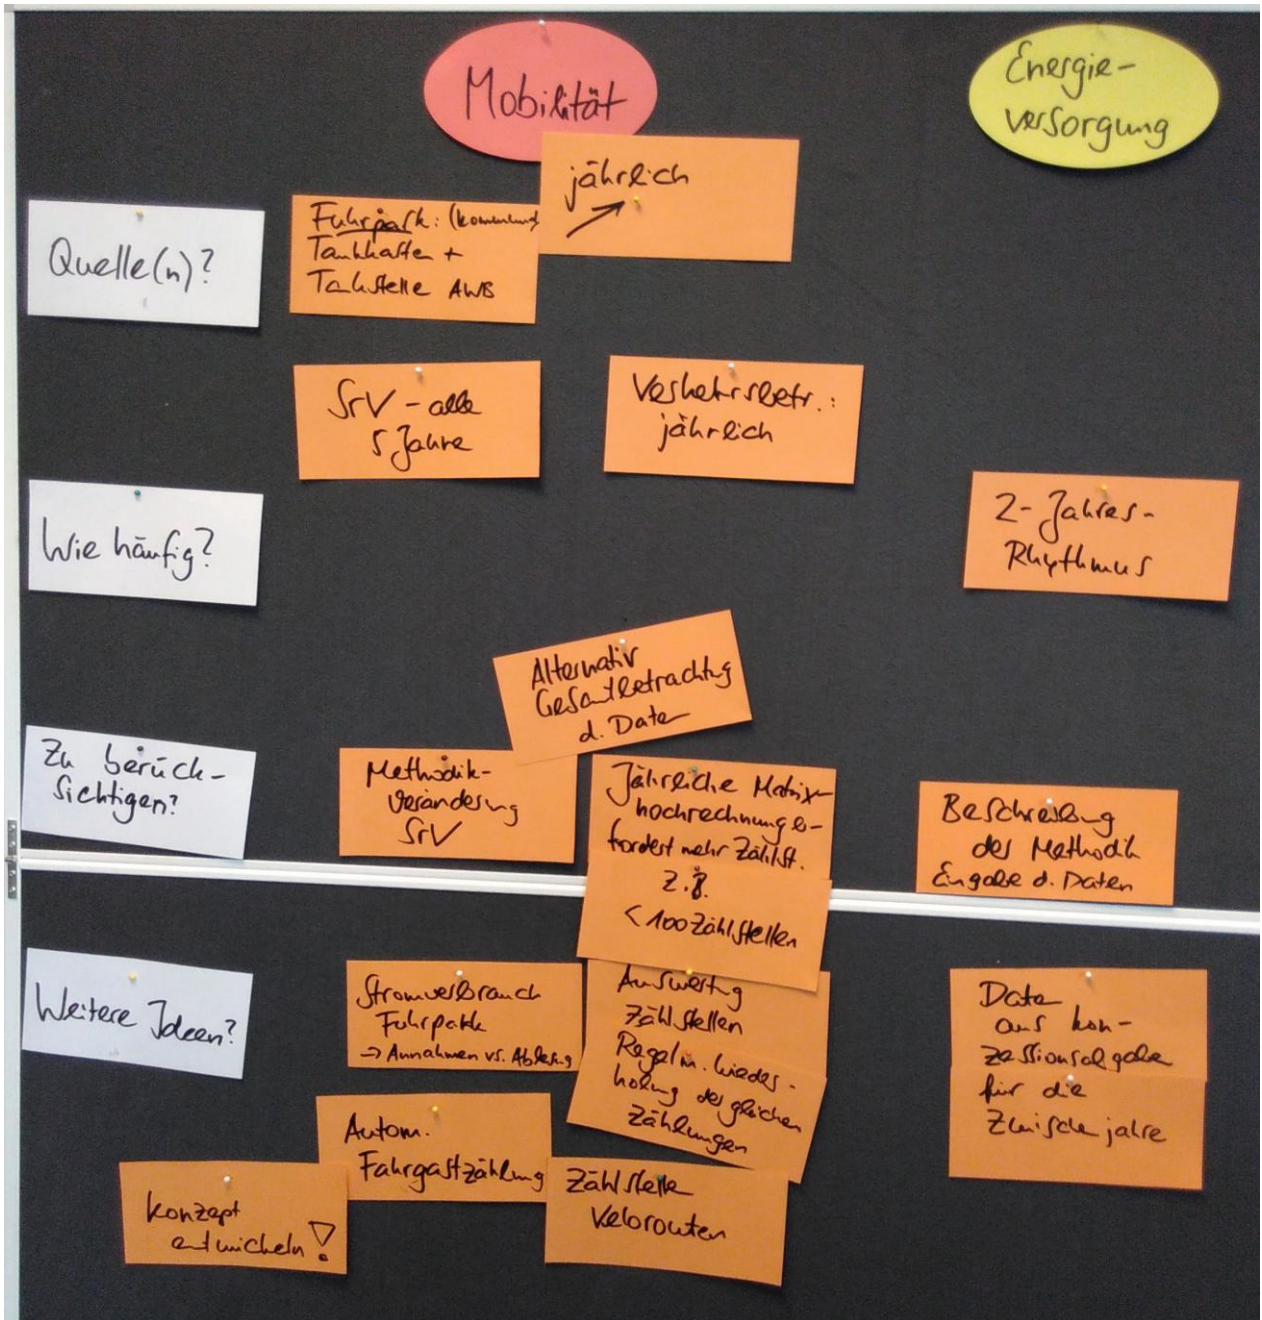 Mobilität
Energie-
versorgung
jährlich
Quelle(n)?
Fuhrpark: (kommunal
Tankkarten +
Tankstelle AWB
SrV - alle
5 Jahre
Verkehrsbetr.:
jährlich
Wie häufig?
2-Jahres-
Rhythmus
Alternativ
Gesamtbetrachtung
d. Daten
Zu berück-
sichtigen?
Methodik-
veränderung
SrV
Jährliche Matrix-
hochrechnung er-
fordert mehr Zählst.
z.B.
< 100 Zählstellen
Beschreibung
der Methodik
Eingabe d. Daten
Weitere Ideen?
Stromverbrauch
Fuhrpark
→ Annahmen vs. Ablesung
Auswertung
Zählstellen
Regelm. Wieder-
holung der gleichen
Zählungen
Daten
aus Kon-
zessionsabgabe
für die
Zwischenjahre
Autom.
Fahrgastzählung
Konzept
entwickeln!
Zählstelle
Velorouten